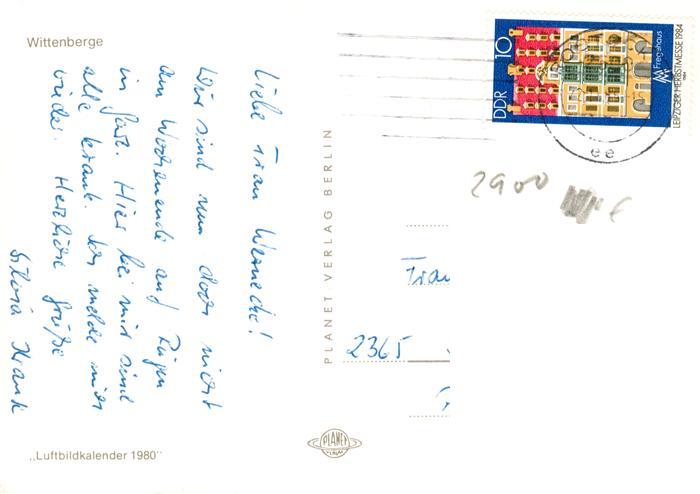 Wittenberge
Liebe Frau Warnecke!
Wir sind nun doch nicht
am Wochenende auf Rügen
in Garz. Hier bei mir sind
alle krank. Ich melde mich
wieder. Herzliche Grüße
Krank
„Luftbildkalender 1980"
PLANET VERLAG BERLIN
PLANET
DDR 10
Fregehaus
LEIPZIGER HERBSTMESSE 1984
ee
2900
Frau
2365